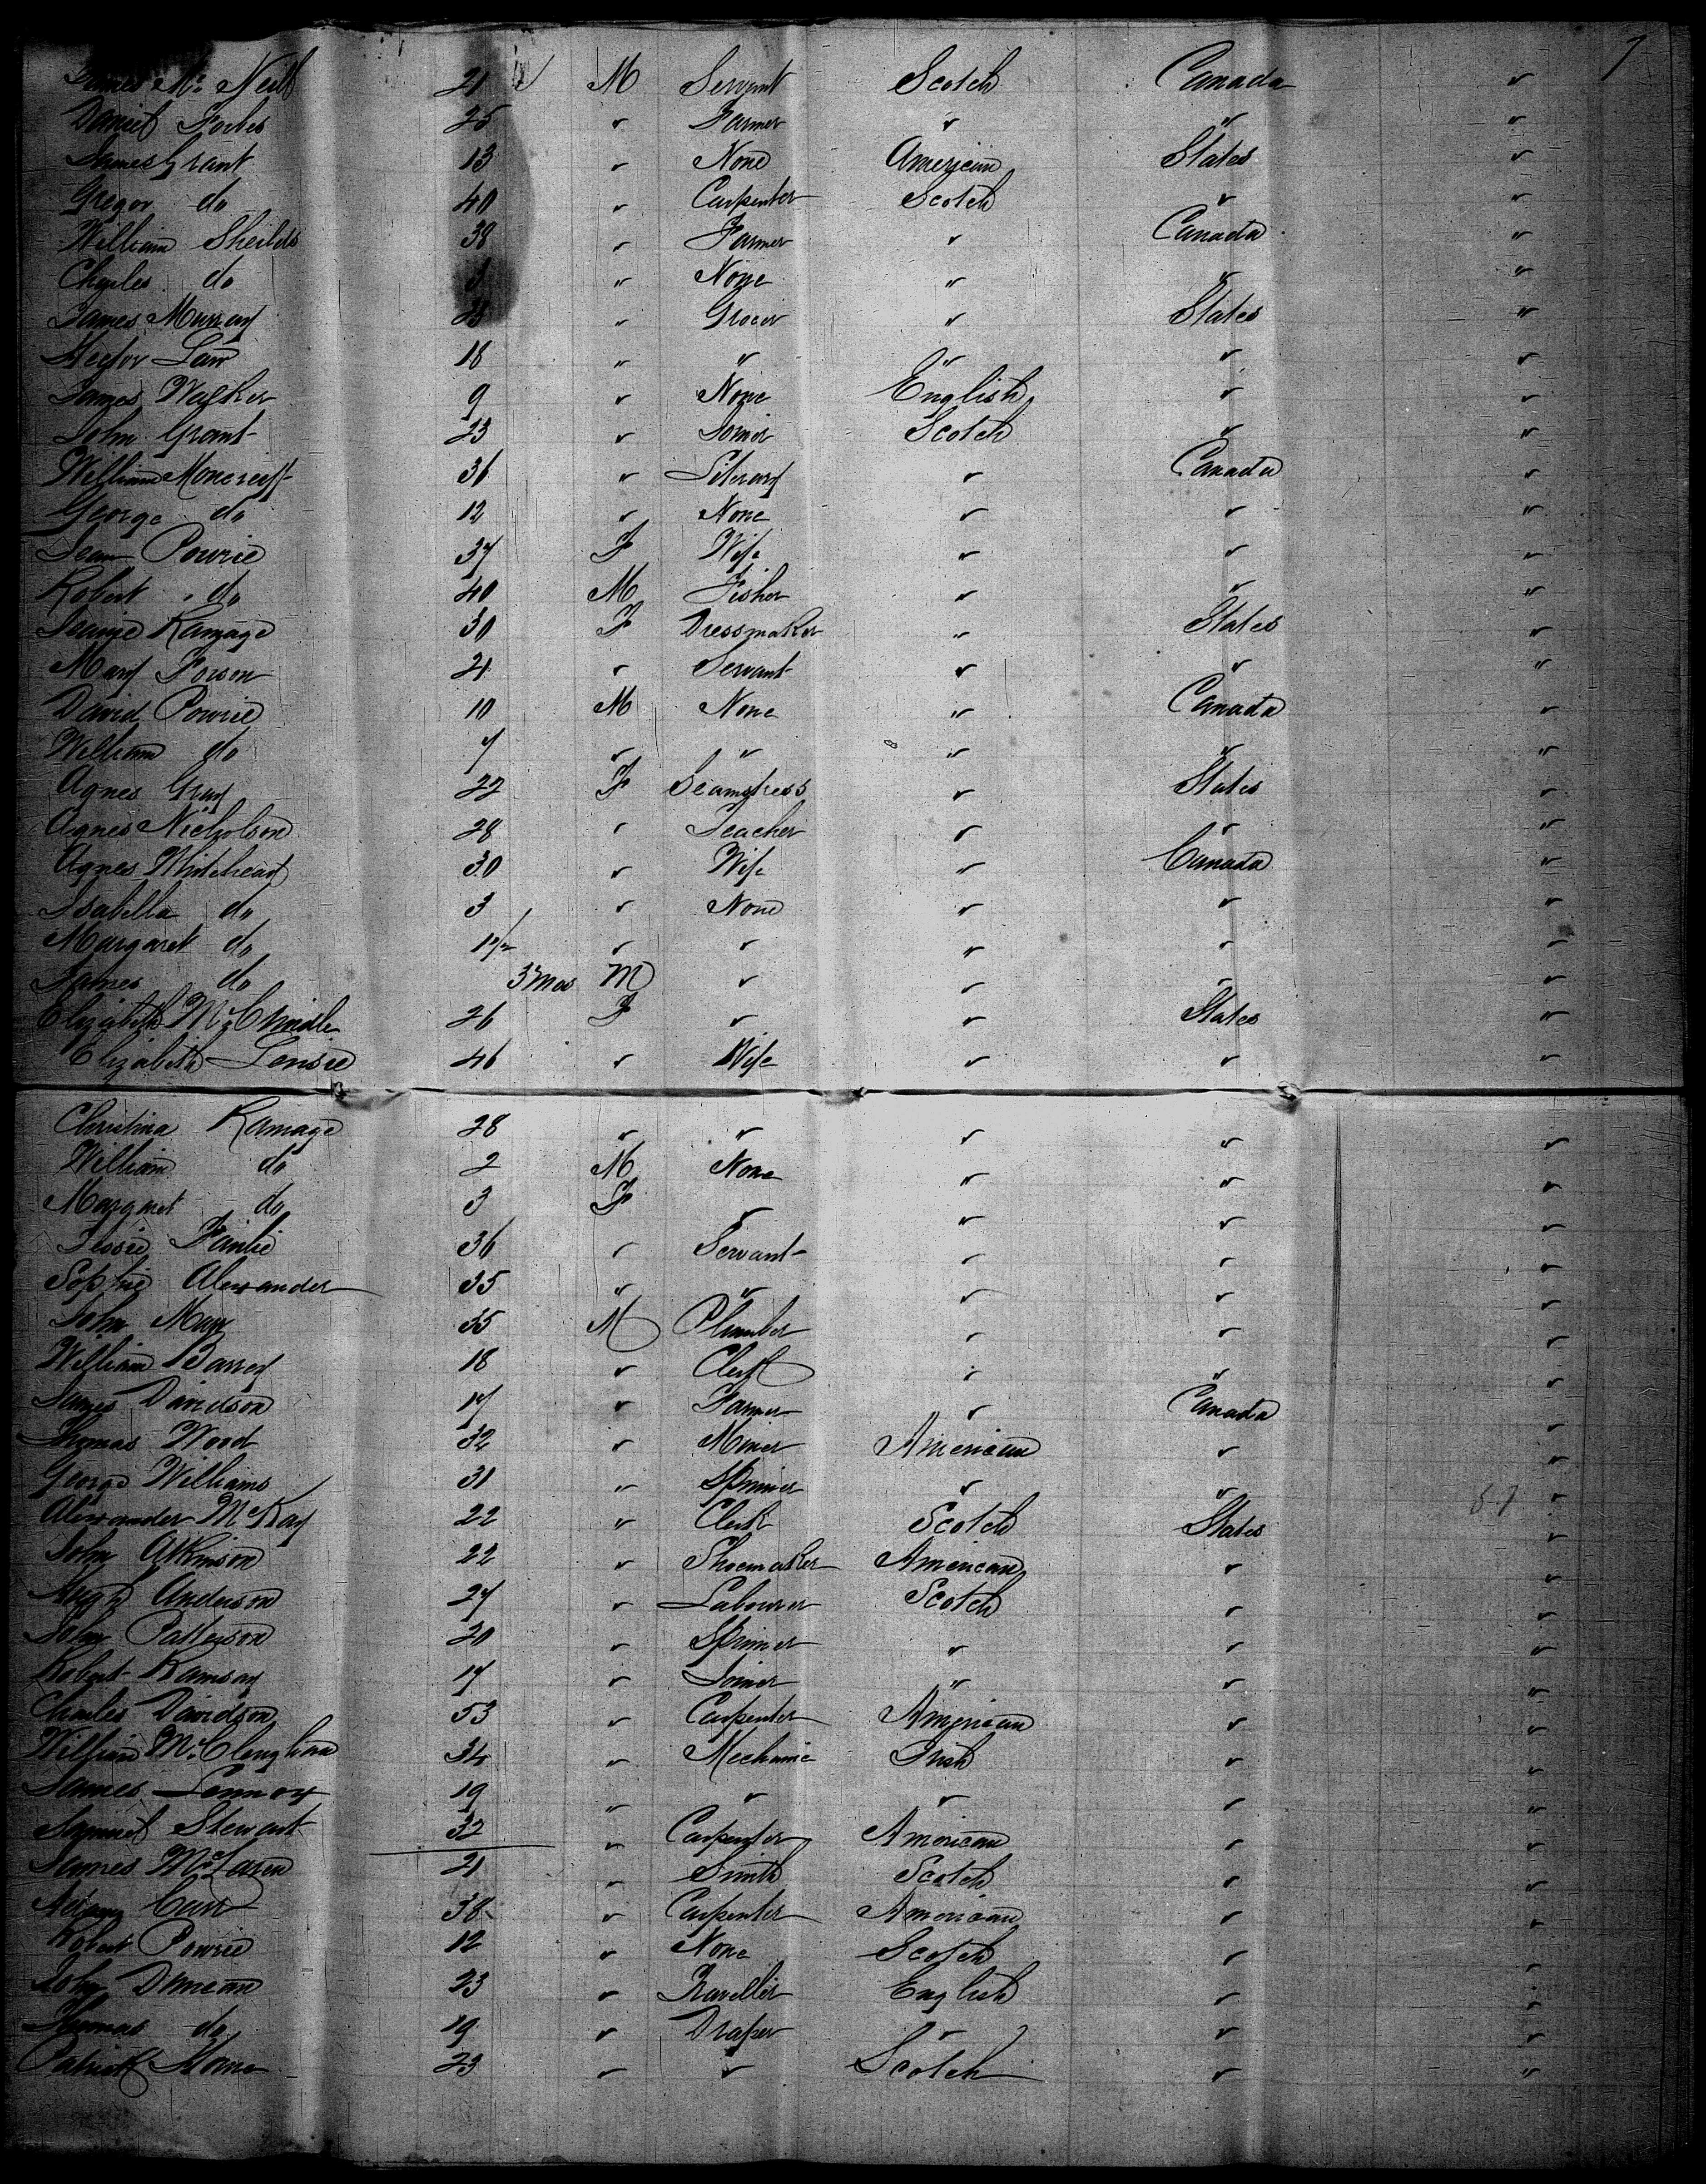 7
James Mc Neill 21 M Servant Scotch Canada "
Daniel Forbes 25 " Farmer " " "
James Grant 13 " None American States "
Gregor do 40 " Carpenter Scotch " "
William Sheilds 38 " Farmer " Canada "
Charles do " None " " "
James Murray " Grocer " States "
Hector Law 18 " " " " "
James Walker 9 " None English " "
John Grant 23 " Joiner Scotch " "
William Moncreiff 36 " Literary " Canada "
George do 12 " None " " "
Jean Powrie 37 F Wife " " "
Robert do 40 M Fisher " " "
Jeanie Ramage 30 F Dressmaker " States "
Mary Forson 21 " Servant " " "
David Powrie 10 M None " Canada "
William do 7 " " " " "
Agnes Gray 22 F Seamstress " States "
Agnes Nicholson 28 " Teacher " " "
Agnes Whitehead 30 " Wife " Canada "
Isabella do 3 " None " " "
Margaret do 1 1/2 " " " " "
James do 3 mos M " " " "
Elizabeth 26 F " " States "
Elizabeth 46 " Wife " " "
Christina Ramage 28 " " " " "
William do 2 M None " " "
Margaret do 3 F " " " "
Jessie Fairlie 36 " Servant " " "
Sophie Alexander 35 " " " " "
John Muir 35 M Plumber " " "
William Barrey 18 " Clerk " " "
James Davidson 17 " Farmer " Canada "
Thomas Wood 32 " Miner American " "
George Williams 31 " Spinner " " "
Alexander McKay 22 " Clerk Scotch States "
John Atkinson 22 " Shoemaker American " "
Hugh Anderson 27 " Labourer Scotch " "
John Patterson 20 " Spinner " " "
Robert Ramsay 17 " Joiner " " "
Charles Davidson 53 " Carpenter American " "
William McClenghan 34 " Mechanic Irish " "
James Lennox 19 " " " " "
Samuel Stewart 32 " Carpenter American " "
James McLaren 21 " Smith Scotch " "
Adam Carr 38 " Carpenter American " "
Robert Powrie 12 " None Scotch " "
John Duncan 23 " Traveller English " "
Thomas do 19 " Draper " " "
Patrick Horne 23 " " Scotch " "